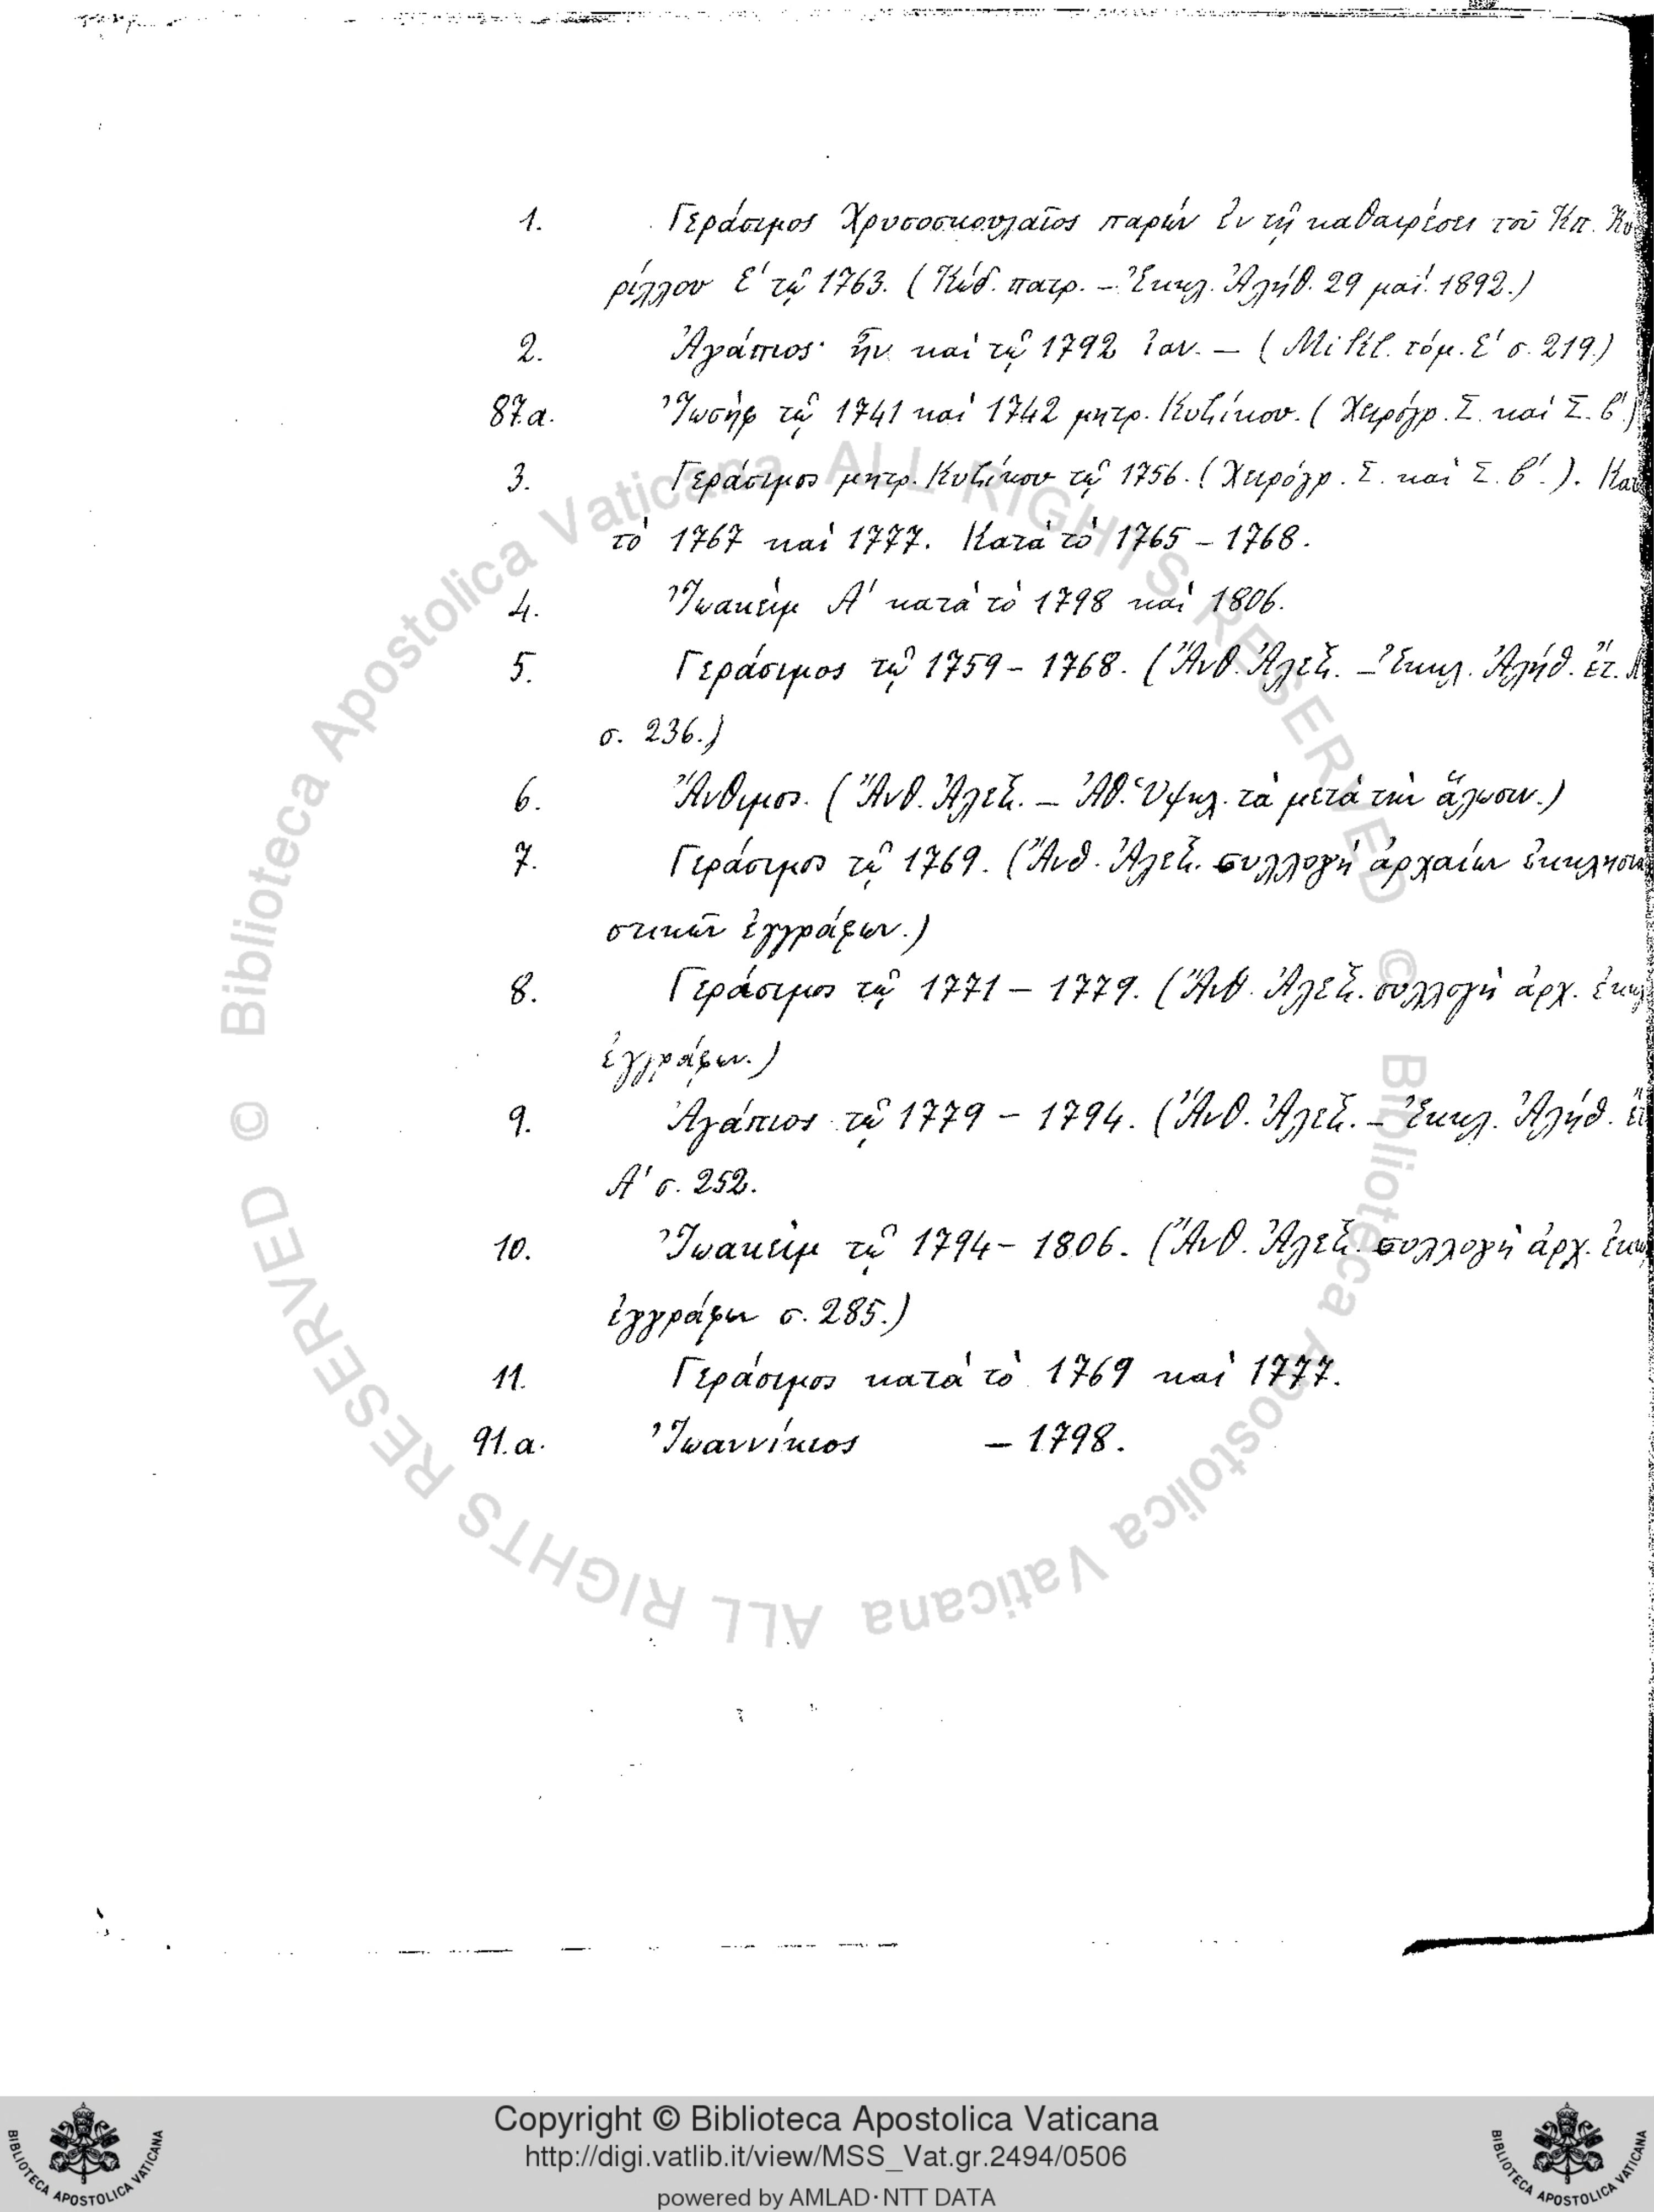 1. Γεράσιμος Χρυσοσκουλαῖος παρὼν ἐν τῇ καθαιρέσει τοῦ Κπ. Κυ
ρίλλου Ε´ τῷ 1763. (Κώδ. πατρ. – Ἐκκλ. Ἀλήθ. 29 μαΐ. 1892.)
2. Ἀγάπιος· ἦν καὶ τῷ 1792 ἰαν. – (Mikl. τόμ. Ε´ σ. 219.)
87.α. Ἰωσὴφ τῷ 1741 καὶ 1742 μητρ. Κυζίκου. (Χειρόγρ. Σ. καὶ Σ. β´.)
3. Γεράσιμος μητρ. Κυζίκου τῷ 1756. (Χειρόγρ. Σ. καὶ Σ. β´.). Κατ
τὸ 1767 καὶ 1777. Κατὰ τὸ 1765 – 1768.
4. Ἰωακεὶμ Α´ κατὰ τὸ 1798 καὶ 1806.
5. Γεράσιμος τῷ 1759 – 1768. (Ἄνθ. Ἀλεξ. – Ἐκκλ. Ἀλήθ. ἔτ.
σ. 236.)
6. Ἄνθιμος. (Ἄνθ. Ἀλεξ. – Ἀθ. Ὑψηλ. τὰ μετὰ τὴν ἅλωσιν.)
7. Γεράσιμος τῷ 1769. (Ἄνθ. Ἀλεξ. συλλογὴ ἀρχαίων ἐκκλησια
στικῶν ἐγγράφων.)
8. Γεράσιμος τῷ 1771 – 1779. (Ἄνθ. Ἀλεξ. συλλογὴ ἀρχ. ἐκκλ
ἐγγράφων.)
9. Ἀγάπιος τῷ 1779 – 1794. (Ἄνθ. Ἀλεξ. – Ἐκκλ. Ἀλήθ. ἔτ
Α´ σ. 252.
10. Ἰωακεὶμ τῷ 1794 – 1806. (Ἄνθ. Ἀλεξ. συλλογὴ ἀρχ. ἐκκ
ἐγγράφων σ. 285.)
11. Γεράσιμος κατὰ τὸ 1769 καὶ 1777.
91.α. Ἰωαννίκιος – 1798.
© Biblioteca Apostolica Vaticana ALL RIGHTS RESERVED
© Biblioteca Apostolica Vaticana ALL RIGHTS RESERVED
Copyright © Biblioteca Apostolica Vaticana
http://digi.vatlib.it/view/MSS_Vat.gr.2494/0506
powered by AMLAD·NTT DATA
BIBLIOTECA APOSTOLICA VATICANA
BIBLIOTECA APOSTOLICA VATICANA